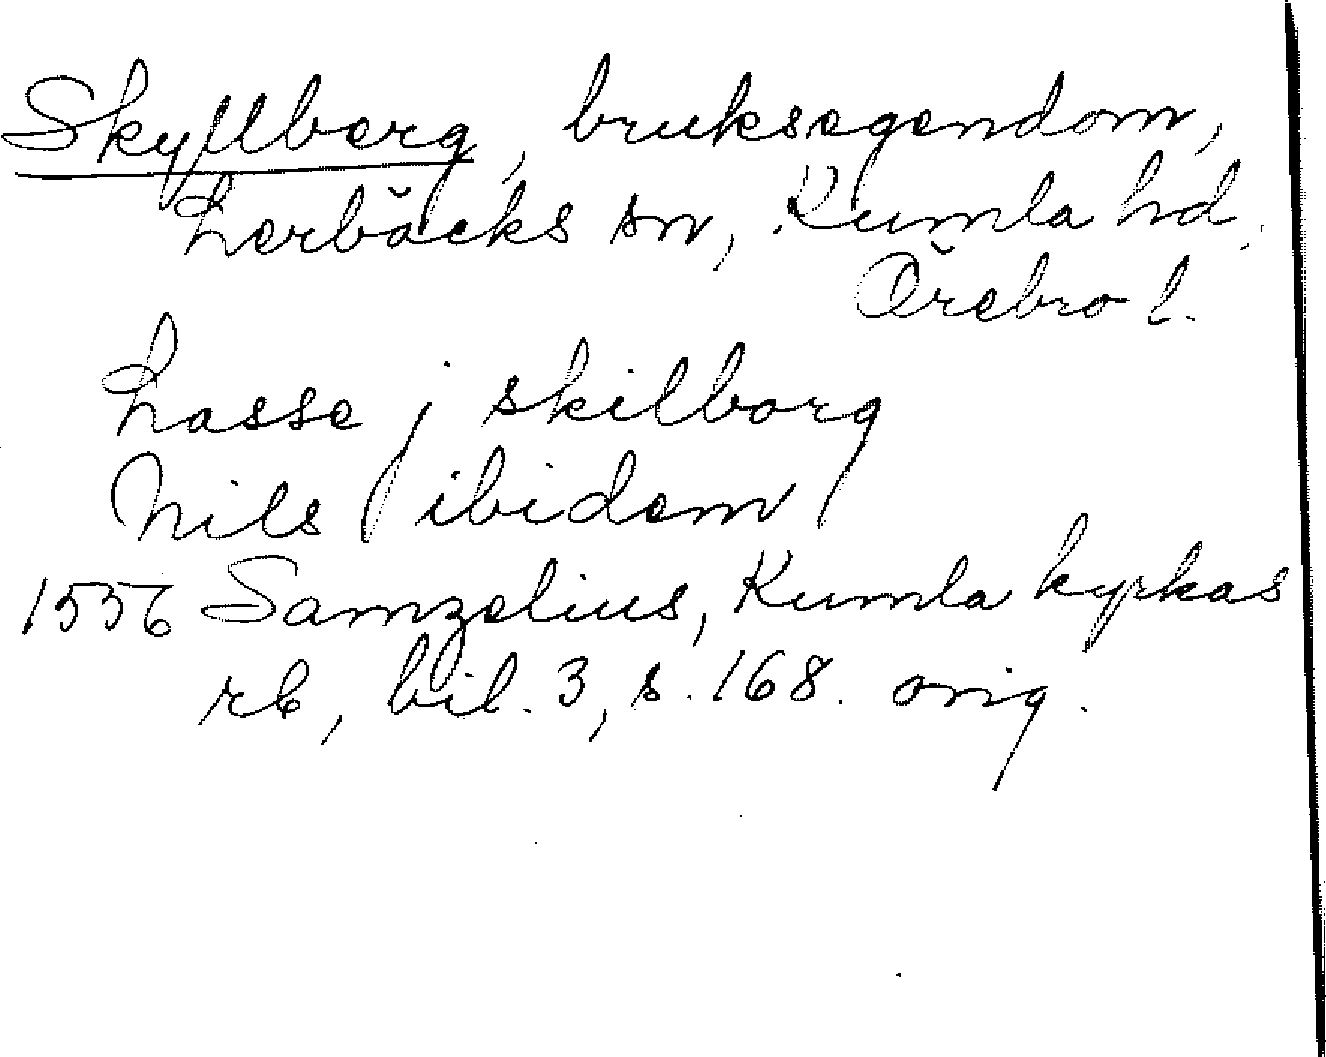 Skyllberg, bruksegendom,
Lerbäcks sn, Kumla hd,
Örebro l.
Lasse j skilborg
Nils ibidem
1556 Samzelius, Kumla kyrkas
rb, bil. 3, s. 168. orig.